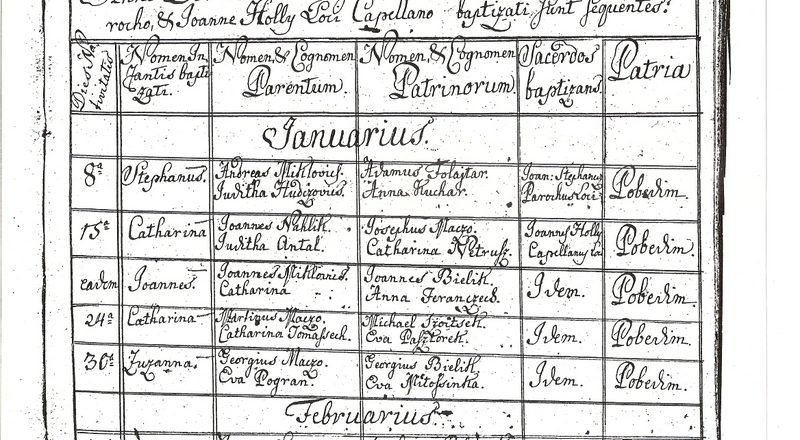 rocho, & Ioanne Holly Loci Capellano baptizati sunt sequentes.
Dies Na
tivitatis
Nomen In
fantis bapti
zati.
Nomen, & Cognomen
Parentum.
Nomen, & Cognomen
Patrinorum.
Sacerdos
baptizans.
Patria
Ianuarius.
8a
Stephanus.
Andreas Miklovics.
Juditha Hudczovics.
Adamus Folajtar.
Anna Kuchar.
Ioan: Stephanus
Parochus Loci
Pobedim.
15a
Catharina
Joannes Nahlik.
Juditha Antal.
Josephus Maczo.
Catharina
Joannes Holly
Capellanus
Pobedim.
eadem
Joannes.
Joannes Miklovics.
Catharina
Joannes Bielik.
Anna
Idem.
Pobedim.
24a
Catharina
Martinus Maczo.
Catharina Tomasseck.
Michael
Eva Pasztorek.
Idem.
Pobedim.
30a
Zuzanna.
Georgius Maczo.
Eva Pogran.
Georgius Bielik.
Eva Mitossinka.
Idem.
Pobedim.
Februarius.